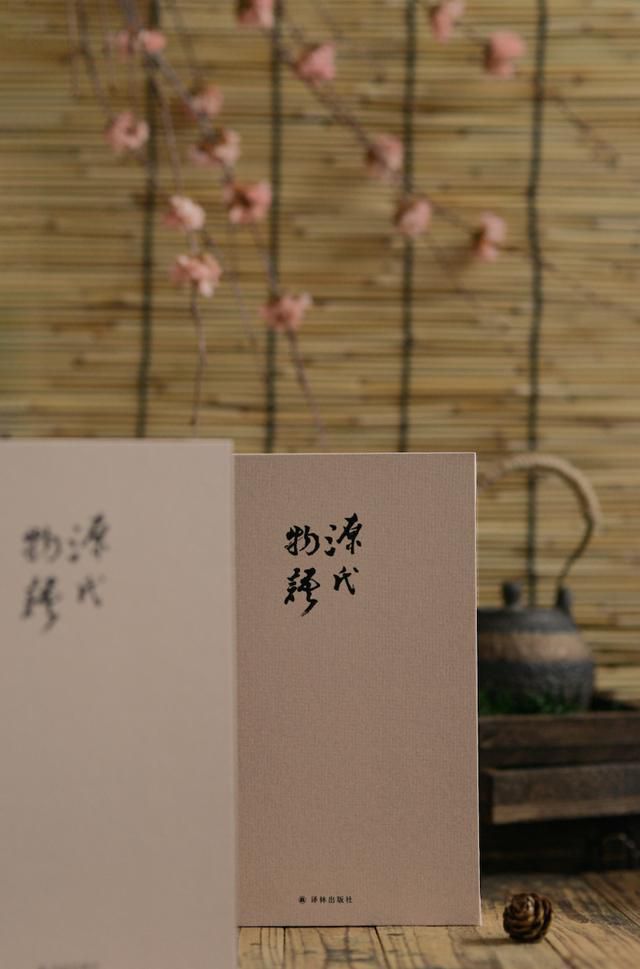 源氏
物語
源氏
物語
译林出版社